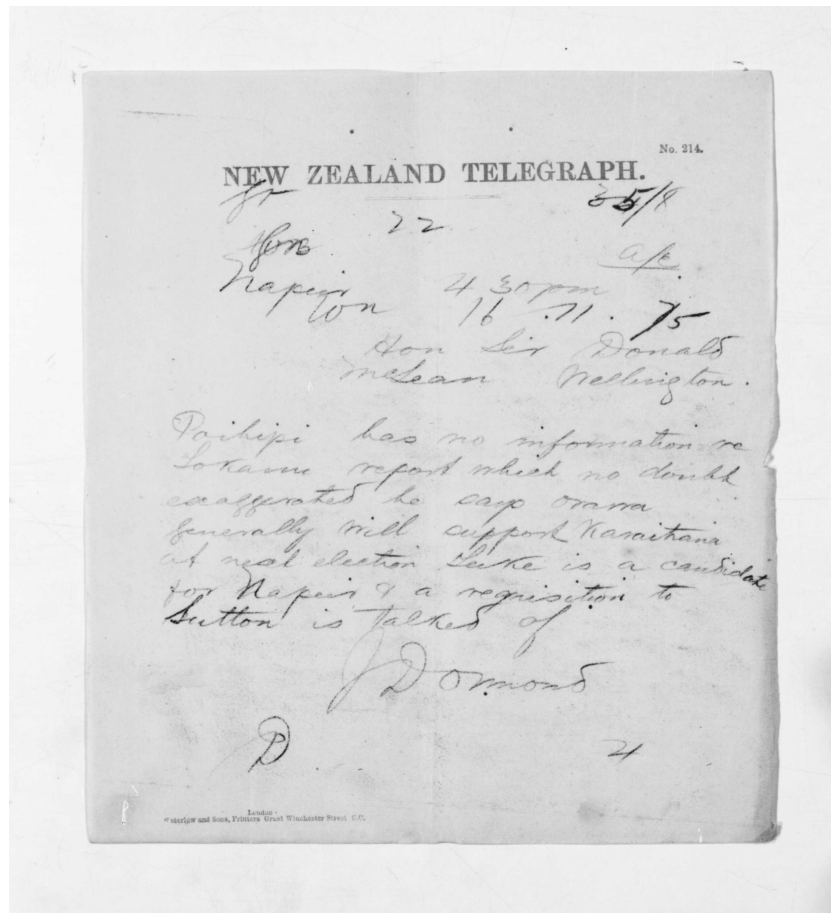 No. 214.
NEW ZEALAND TELEGRAPH.
22
Napier 4 30 pm
16 . 11 . 75
Hon Sir Donald
McLean Wellington.
Poihipi has no information re
report which no doubt
exaggerated he says
generally will support Karaitiana
at next election is a candidate
for Napier & a requisition to
Sutton is talked of
J D Ormond
London
Waterlow and Sons, Printers Great Winchester Street E.C.